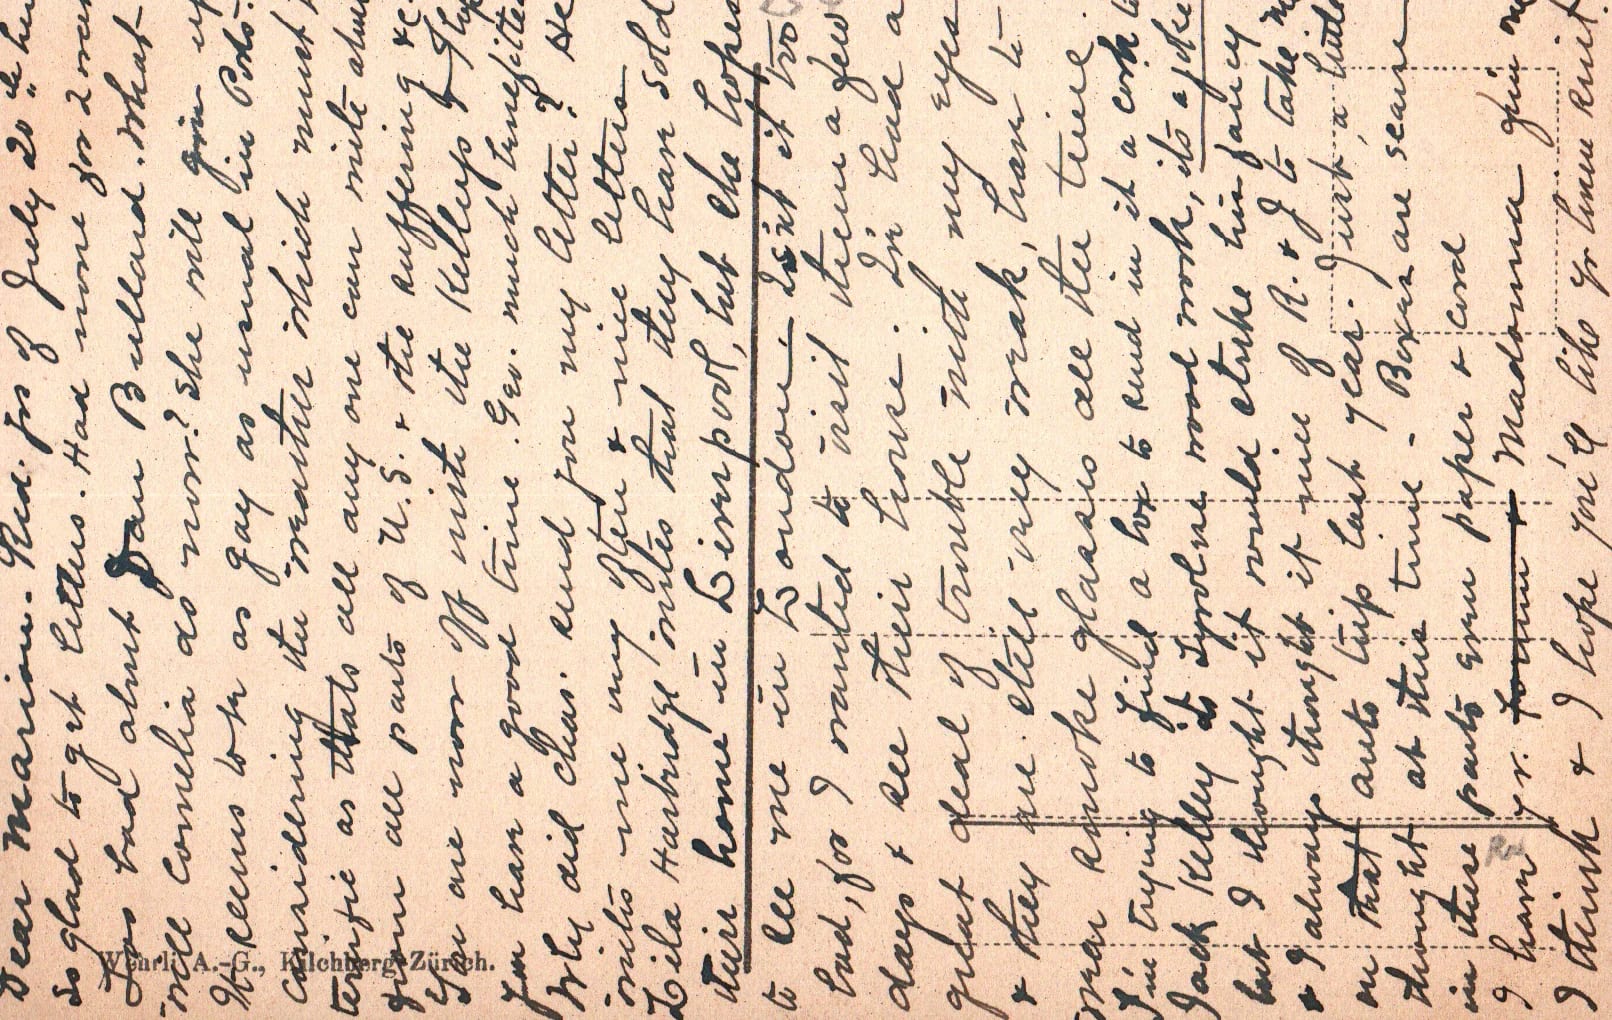 Dear Marion. Red. yrs of July 20th
so glad to get letters. Had none for 2
Too bad about Dan Bullard. What
will Cornelia do now? She will give up
K seems to be as gay as usual in Ports.
Considering the weather which must
terrific as thats all any one can write about
from all parts of U.S. & the suffering &c.
You are now off with the Kelleys & I hope
you have a good time. Geo. much benefited
Why did Chas. send you my letter? He
writes me very often & nice letters
Lila Harbridge writes that they have sold
their home in Liverpool, but she hopes
to see me in London. Isn't it too
bad, for I wanted to visit them a few
days & see their house. I've had a
great deal of trouble with my eyes
& they are still very weak, have to
wear smoke glasses all the time.
I'm trying to find a box to send in it a cork
Jack Kelley its Tyrolne wood work, its a joke
but I thought it would strike his fancy
& I always thought it nice of R. & J to take me
on that auto trip last year. Just a little
thought at this time - Boxes are scarce
in these parts even paper & cord
I have yr. & Madonna
I think & I hope you'll like yr linen suit.
Wehrli A.-G., Kilchberg-Zürich.